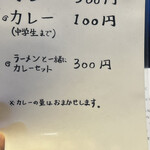 ◎カレー 100円
(中学生まで)
◎ラーメンと一緒に
カレーセット 300円
※カレーの量はおまかせします。